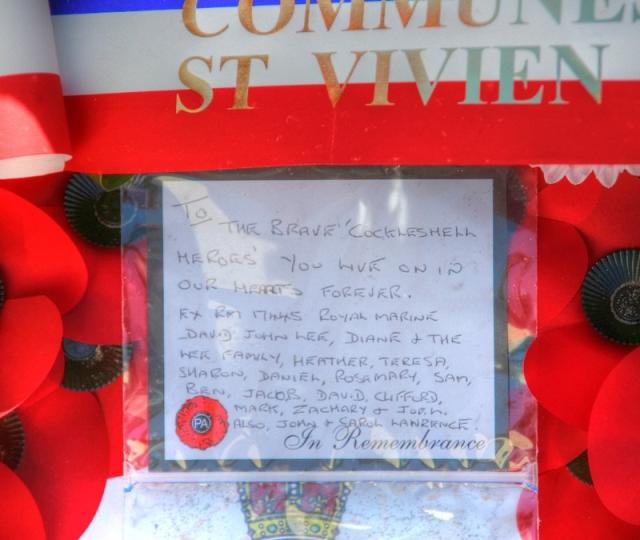 COMMUNES
ST VIVIEN
To
THE BRAVE "COCKLESHELL
HEROES" YOU LIVE ON IN
OUR HEARTS FOREVER.
EX RM ROYAL MARINE
DAVID JOHN LEE, DIANE & THE
LEE FAMILY, HEATHER, TERESA,
SHARON, DANIEL, ROSAMARY, SAM,
BEN, JACOB, DAVID, CLIFFORD,
MARK, ZACHARY &
ALSO, JOHN & CAROL LAWRENCE
PA
In Remembrance